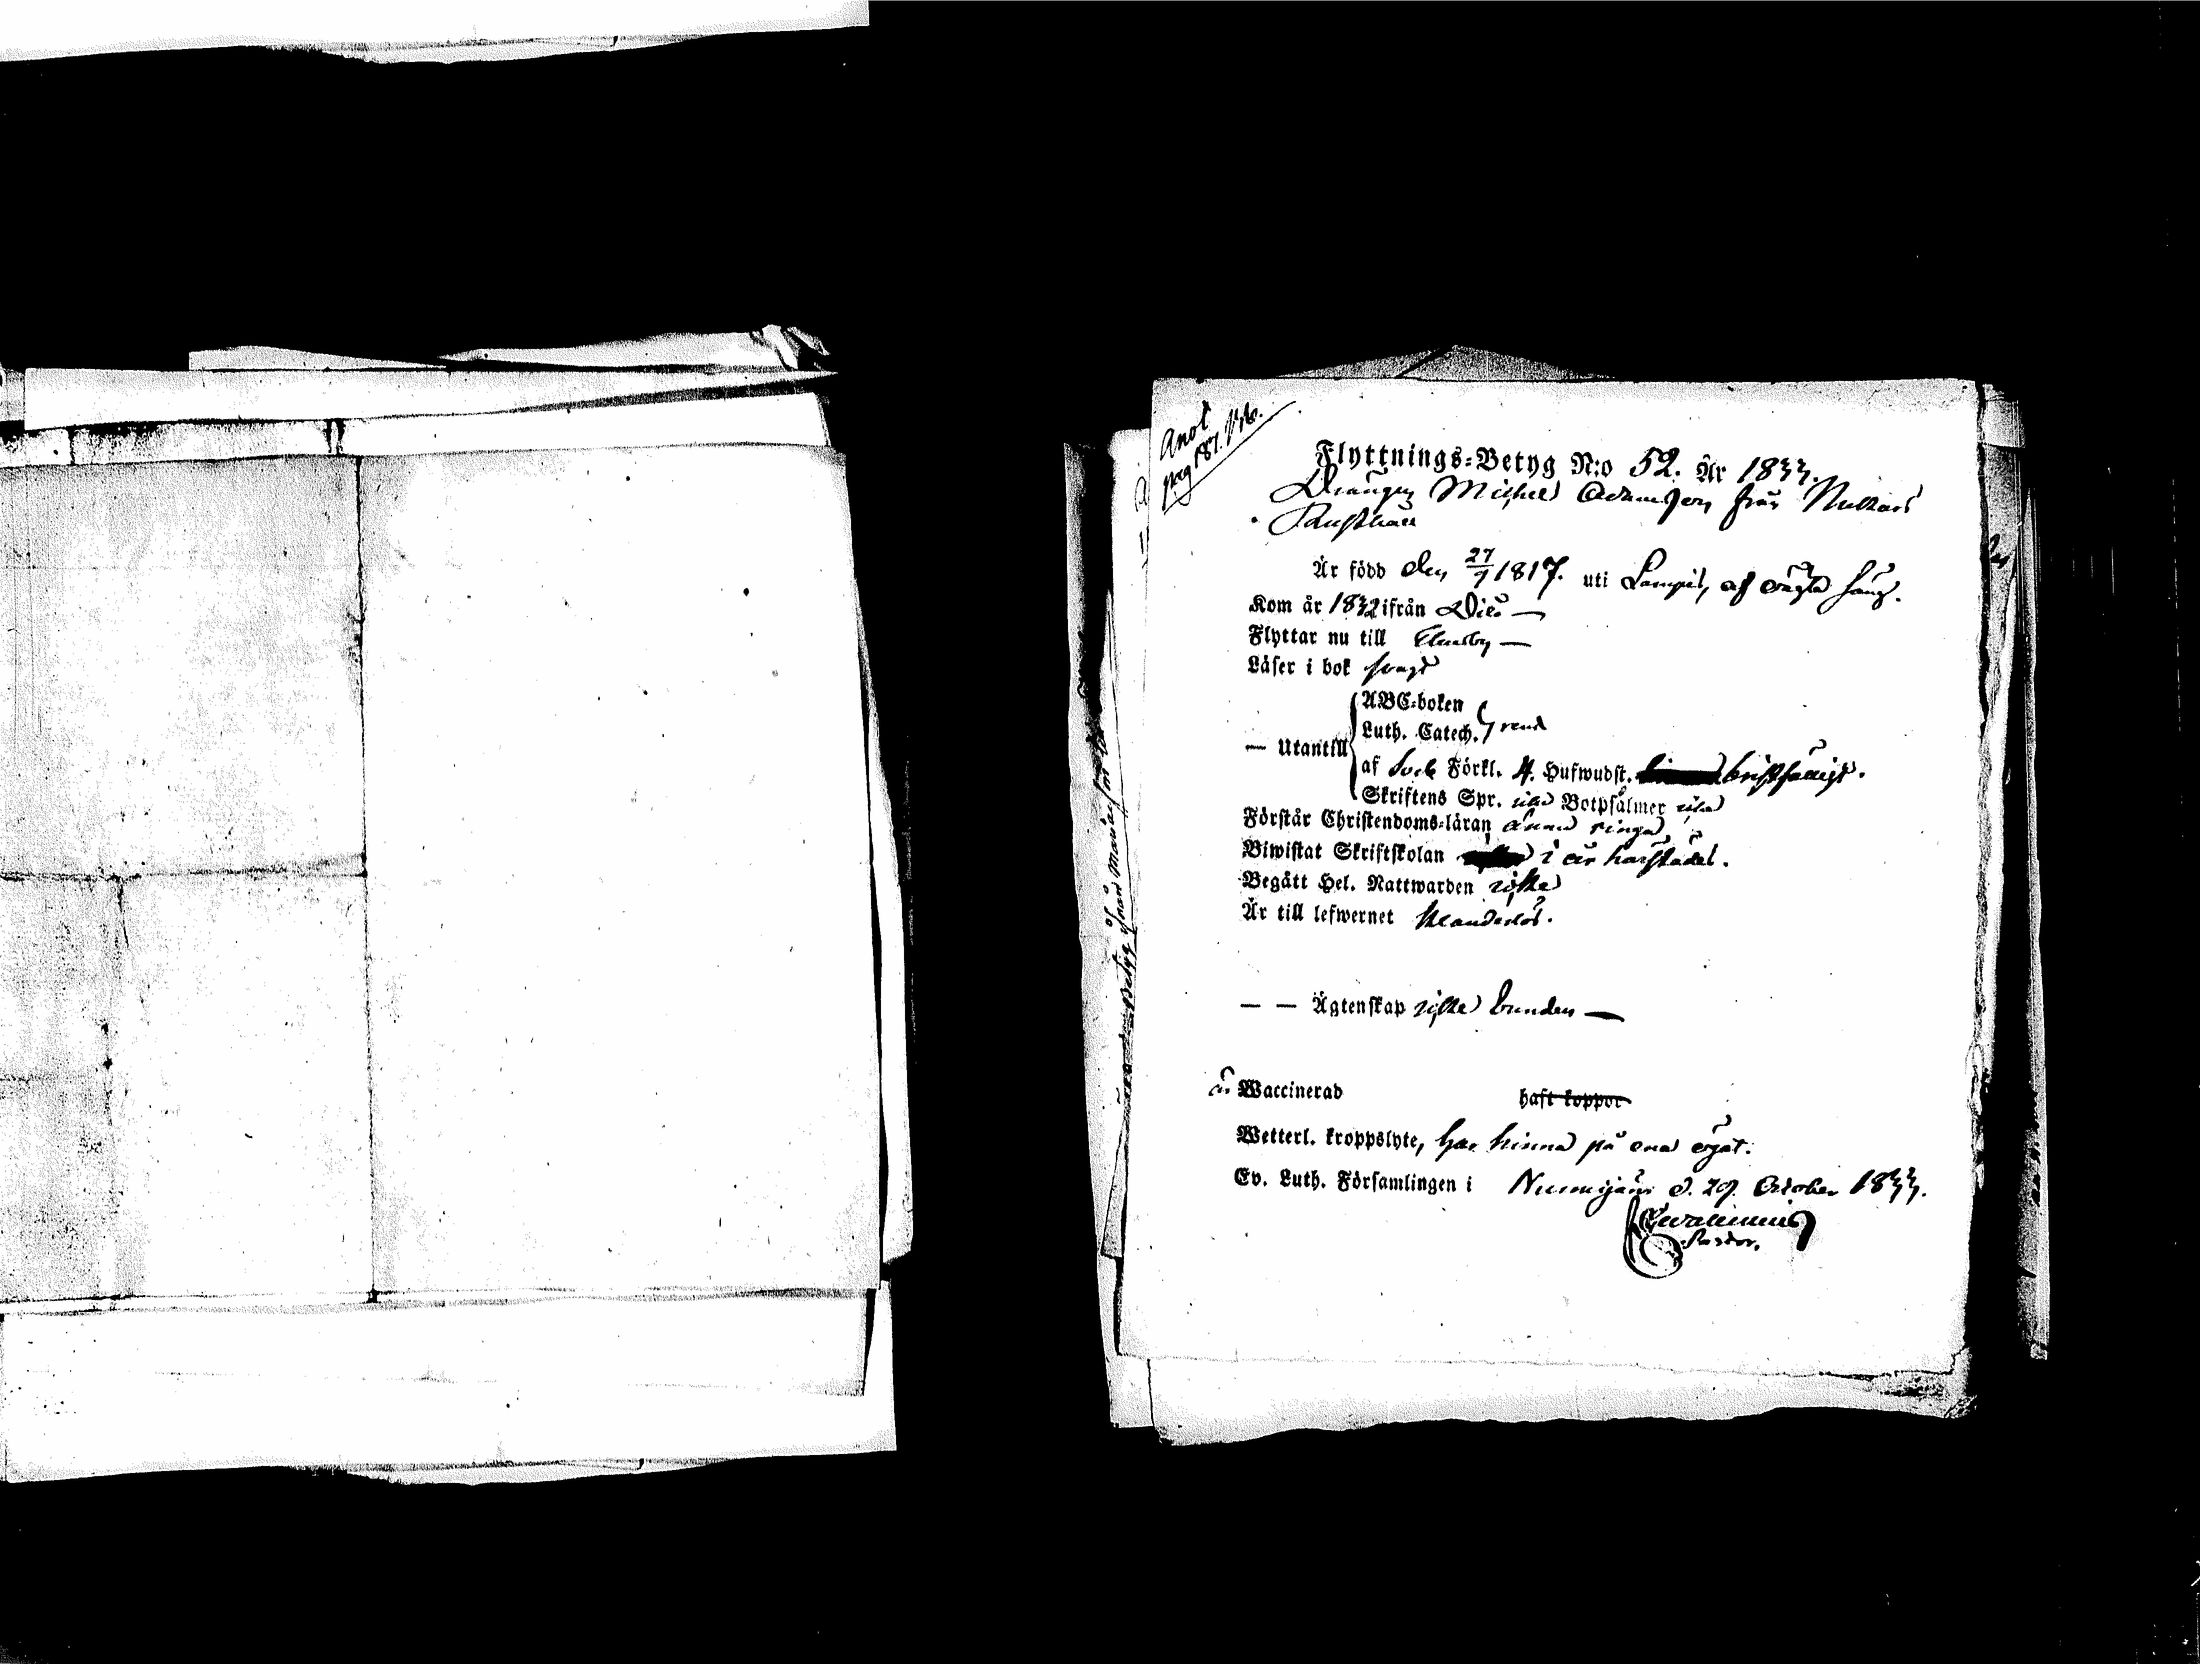 Anot
pag 187.
Flyttnings-Betyg N:o 52. År 1833.
Drängen Michel Adamsson från Nukari
Rusthåll
Är född den 27/9 1817. uti Lampis, af ägta säng.
Kom år 1832 ifrån Dito —
Flyttar nu till —
Läser i bok svagt
ABC-boken
Luth. Catech. rent
— Utantill
af Sveb. Förkl. 4. Hufwudst. bristfälligt.
Skriftens Spr. icke Botpsalmer icke
Förstår Christendoms-läran ännu ringa
Biwistat Skriftskolan i år härstädes.
Begått Hel. Nattwarden icke
Är till lefwernet oklanderlös.
— — Ägtenskap icke bunden —
är Waccinerad haft koppor
Wetterl. kroppslyte, har hinna på ena ögat.
Ev. Luth. Församlingen i Nurmijärvi d. 29. October 1833.
Pastor.
Betyg ifrån